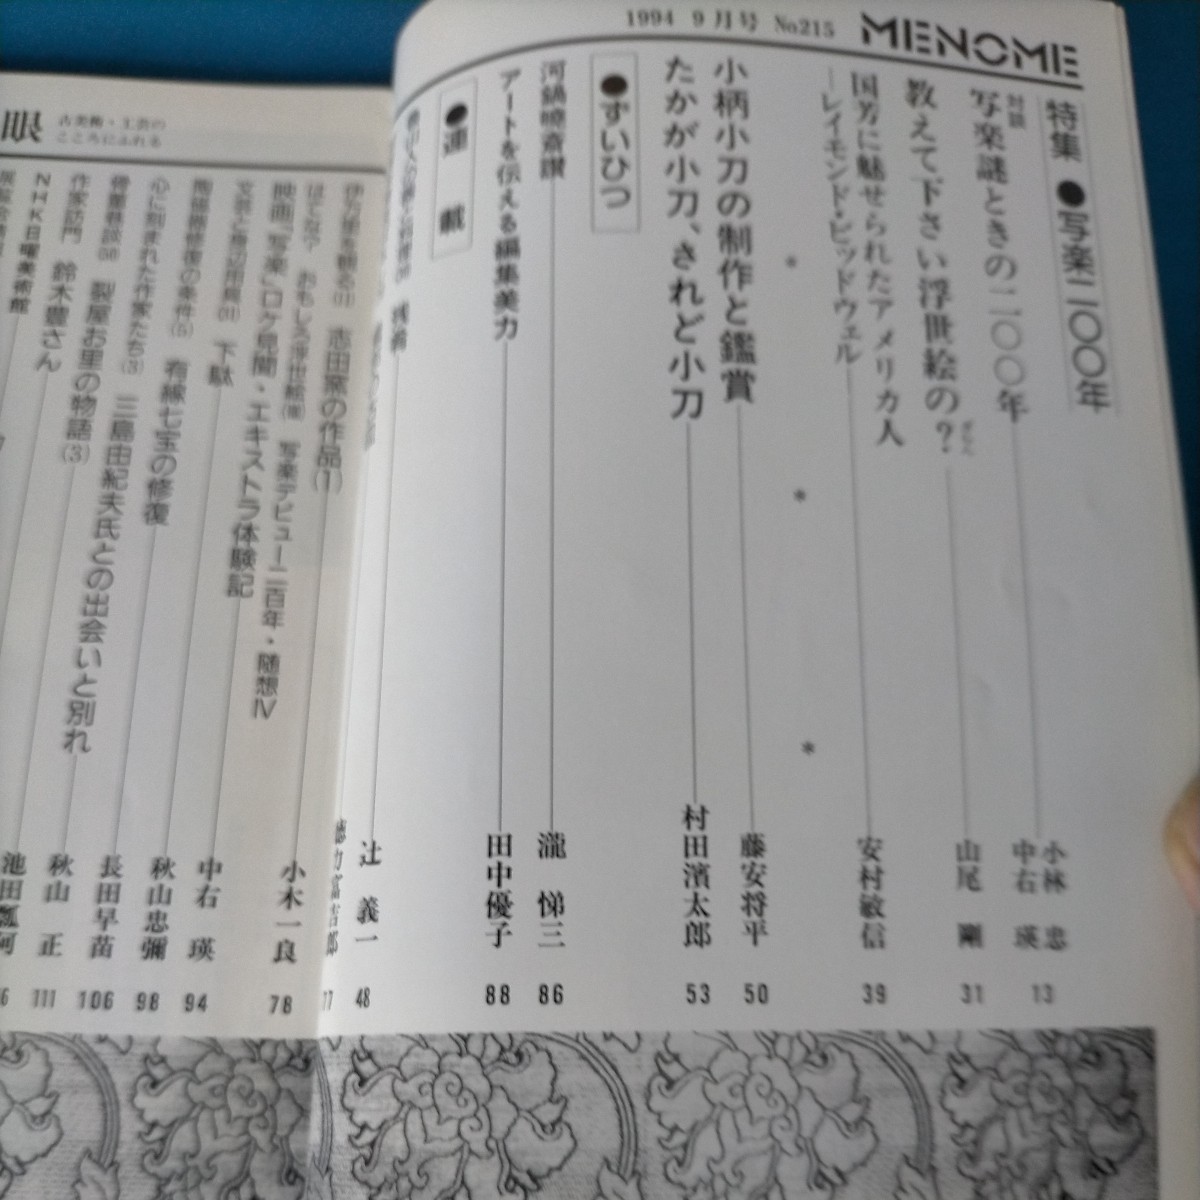 1994 9月号 No215 MENOME
特集 ●写楽二〇〇年
対談
写楽謎ときの二〇〇年
小林 忠
中右 瑛
13
教えて下さい浮世絵の?
山尾 剛
31
国芳に魅せられたアメリカ人
―レイモンド・ビッドウェル
安村敏信
39
* * *
小柄小刀の制作と鑑賞
藤安将平
50
たかが小刀、されど小刀
村田濱太郎
53
●ずいひつ
河鍋暁斎讃
瀧 悌三
86
アートを伝える編集美力
田中優子
88
●連載
辻 義一
48
77
志田窯の作品(1)
小木一良
78
おもしろ浮世絵
写楽デビュー二百年・随想Ⅳ
映画「写楽」ロケ見聞・エキストラ体験記
中右 瑛
94
下駄
秋山忠彌
98
陶磁器修復の条件(5) 有線七宝の修復
長田早苗
106
心に刻まれた作家たち(3) 三島由紀夫氏との出会いと別れ
秋山 正
111
裂屋お里の物語(3)
作家訪問 鈴木豊さん
NHK日曜美術館
眼
古美術・工芸の
こころにふれる